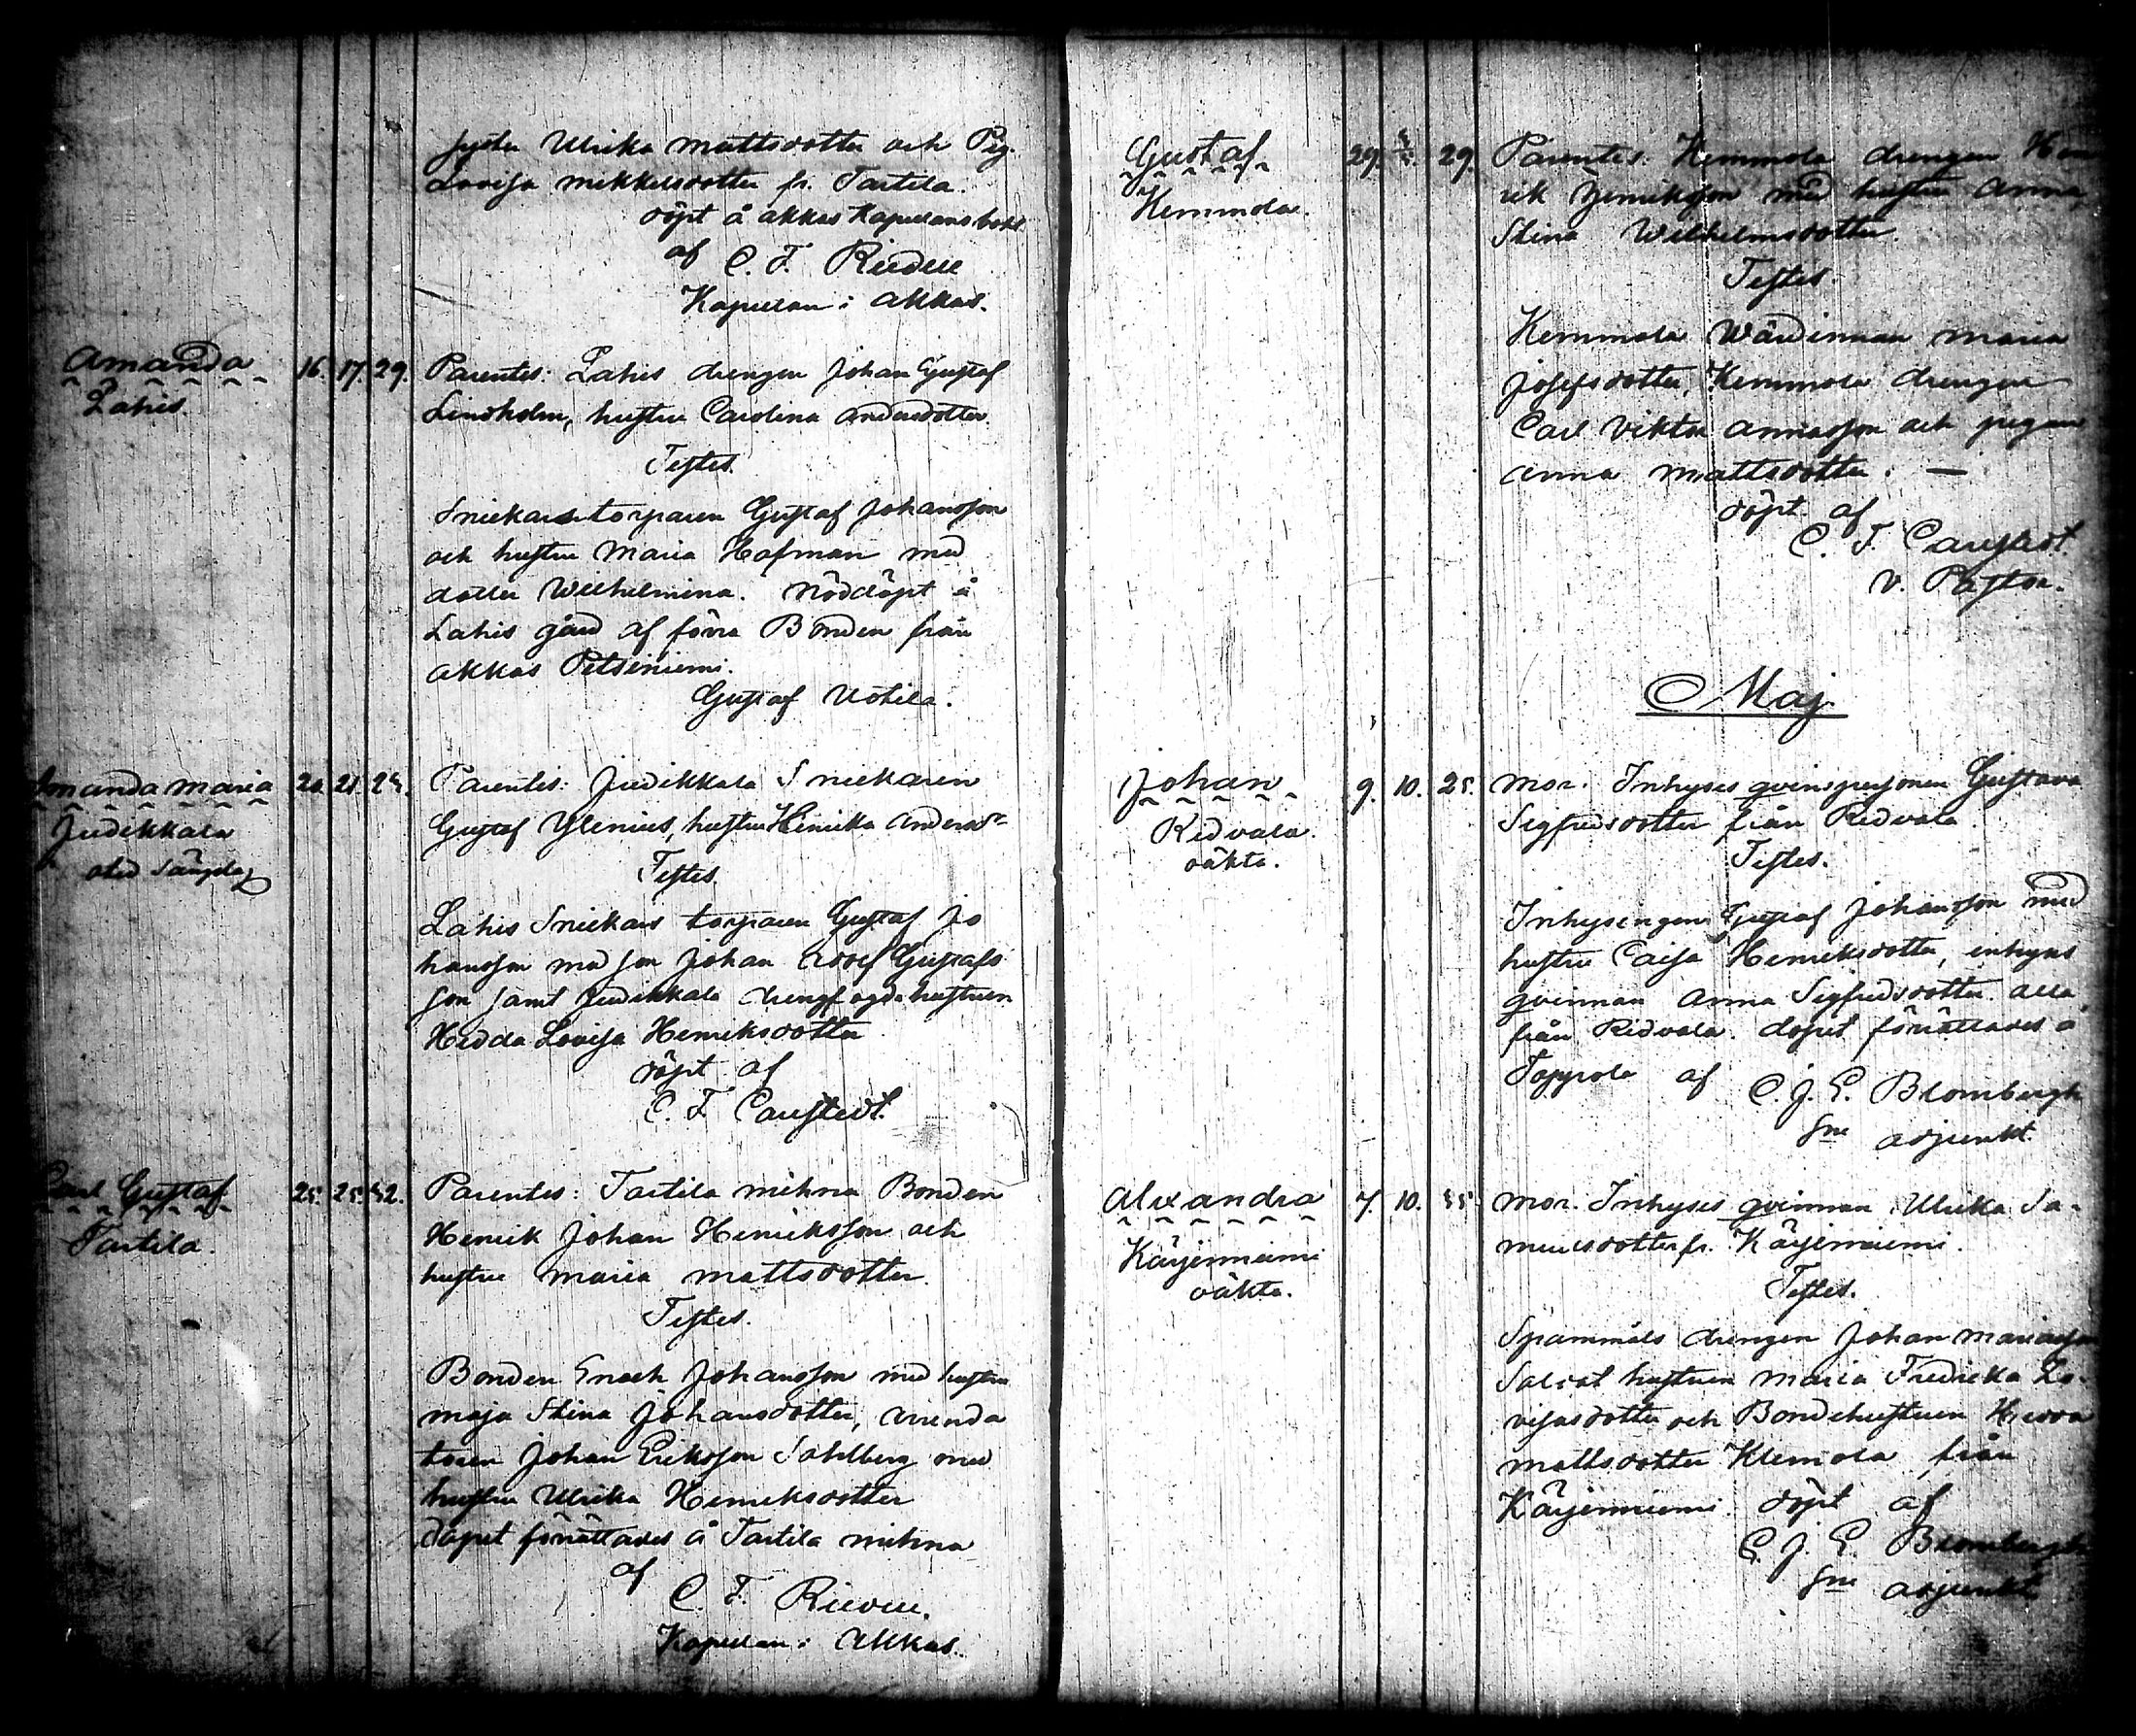 syster Ulrika Mattsdotter och Pig.
Lovisa Mikkelsdotter fr. Tarttila.
döpt å Akkas Kapellans bohl
af C. F. Ridell
Kapellan i Akkas.
Amanda 16. 17. 29. Parentes: Lahis drengen Johan Gustaf
Lahis. Lindholm, hustru Carolina Andersdotter.
Testes.
Snickare torparen Gustaf Johansson
och hustru Maria Hofman med
dotter Wilhelmina. Nöddöpt å
Lahis gård af förra Bonden från
Akkas Petsiniemi.
Gustaf Uotila.
Amanda Maria 20. 21. Parentes: Judikkala Snickaren
Judikkala Gustaf Ylenius, hustru Henrika Andersdr
Testes.
Lahis Snickars torparen Gustaf Jo
hansson med son Johan Adolf Gustafs
son samt Judikkala drengf ogde hustrun
Hedda Lovisa Henriksdotter
döpt af
C. F. Carstedt.
Carl Gustaf 25. 25. Parentes: Tartila mihna Bonden
Tartila. Henrik Johan Henriksson och
hustru Maria Mattsdotter.
Testes.
Bonden Enock Johansson med hustru
Maja Stina Johansdotter, Arrenda
toren Johan Eriksson Sahlberg med
hustru Ulrika Henriksdotter
döpet förrättades å Tartila mihna
af
C. F. Ridell.
Kapellan i Akkas.
Gustaf 29. 29. Parentes: Kemmola drengen Hen
Kemmola. rik Henriksson med hustru Anna
Stina Wilhelmsdotter.
Testes.
Kemmola Wärdinnan Maria
Josefsdotter, Kemmola drengen
Carl Viktor Annasson och pigan
Anna Mattsdotter. —
döpt af
C. F. Carstedt.
V. Pastor.
Maj
Johan 9. 10. 25. Mor. Inhyses qvinspersonen Gustava
Ridvala. Sigfridsdotter från Ridvala.
oäkta. Testes.
Inhysingen Gustaf Johansson med
hustru Caisa Henriksdotter, inhyses
qvinnan Anna Sigfridsdotter alla
från Ridvala. döpet förrättades å
Toppola af C. J. E. Blombergh
Sne adjunkt.
Alexandra 7. 10. Mor. Inhyses qvinnan Ulrika Sa-
Kärjenniemi muelsdotter fr. Kärjenniemi.
oäkta. Testes.
Spannmåls drengen Johan Mariasson
Soldat hustrun Maria Fredrika Lo-
visasdotter och Bondehustrun Hedda
Mattsdotter Klemola från
Kärjenniemi döpt af
C. J. E. Blombergh
Sne adjunkt